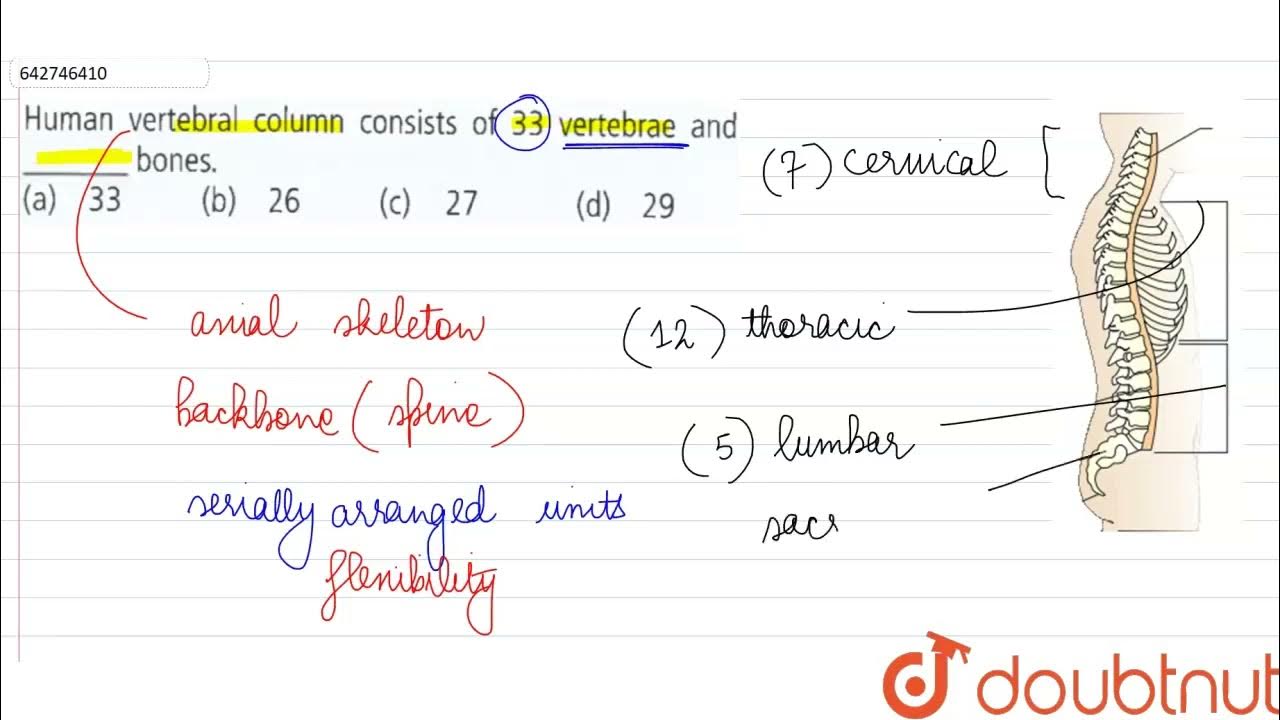 642746410
Human vertebral column consists of 33 vertebrae and
______ bones.
(a) 33 (b) 26 (c) 27 (d) 29
(7) cervical [
axial skeleton
(12) thoracic
backbone (spine)
(5) lumbar
serially arranged units
sacr
flexibility
doubtnut